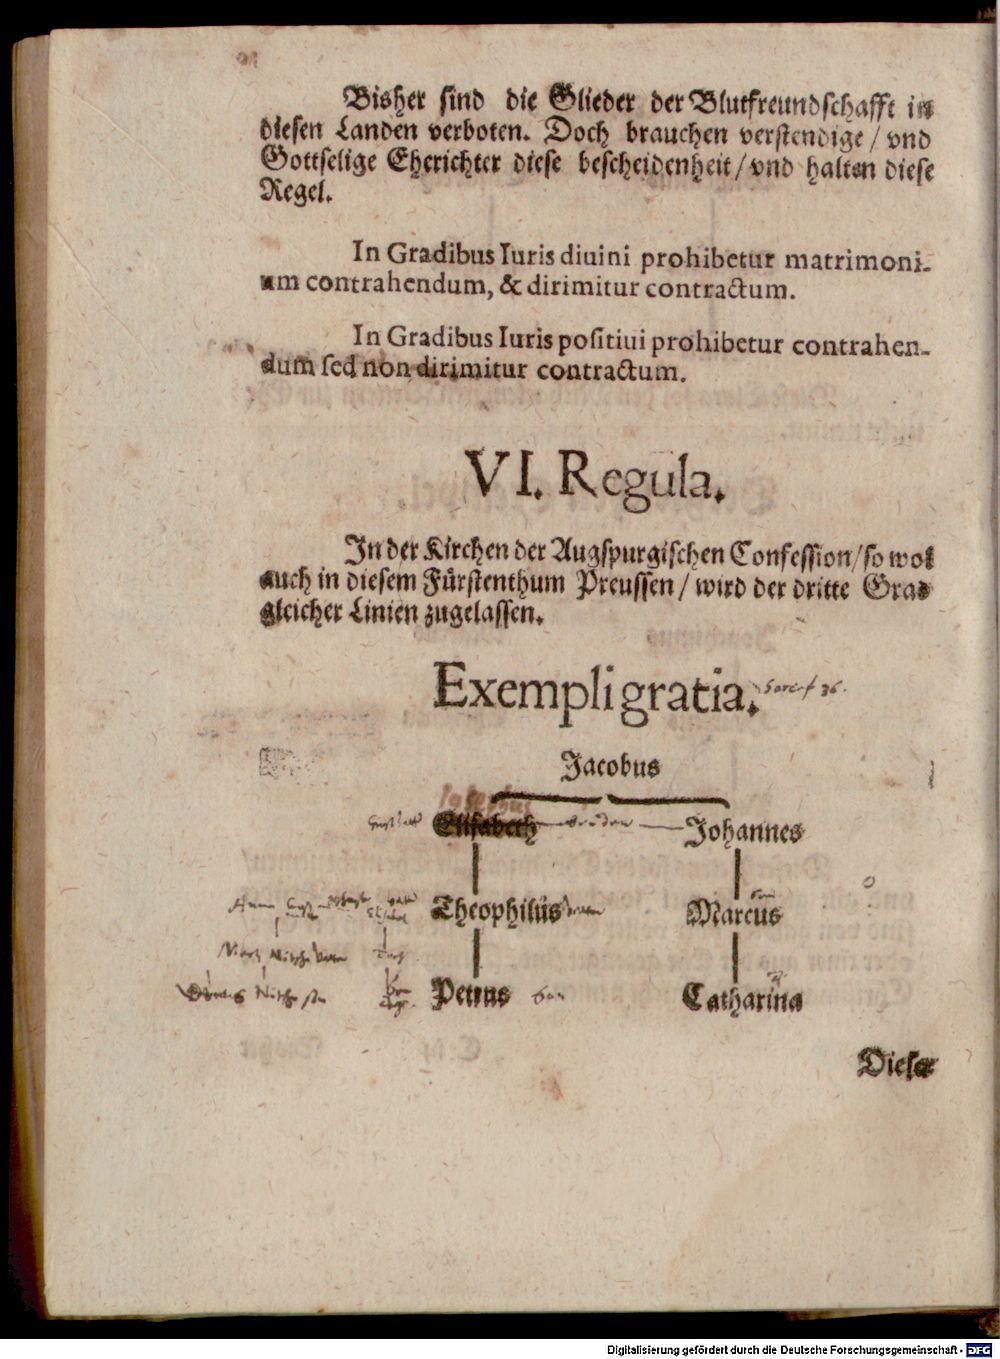 Bisher sind die Glieder der Blutfreundschafft in
diesen Landen verboten. Doch brauchen verstendige / vnd
Gottselige Eherichter diese bescheidenheit / vnd halten diese
Regel.
In Gradibus Iuris diuini prohibetur matrimoni-
um contrahendum, & dirimitur contractum.
In Gradibus Iuris poſitiui prohibetur contrahen-
dum ſed non dirimitur contractum.
VI. Regula.
In der Kirchen der Augspurgischen Confession / so wol
auch in diesem Fürstenthum Preussen / wird der dritte Grad
gleicher Linien zugelassen.
Exempli gratia.
Jacobus
Josephus
Elisabeth Johannes
Theophilus Marcus
Petrus Catharina
Diese
Digitalisierung gefördert durch die Deutsche Forschungsgemeinschaft - DFG